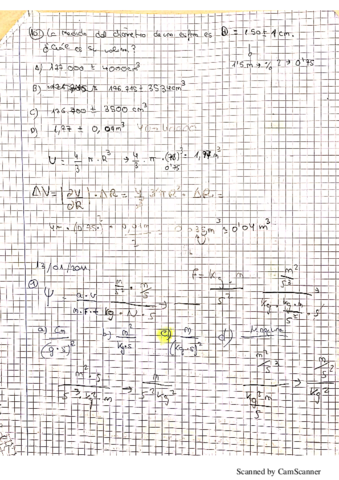 (b) La medida del diametro de un esfera es D = 150 ± 1 cm.
¿Cuál es su volumen?
1'5 m → /2 → 0'75
A) 177 000 ± 4000 cm³
B) 176.715 ± 3534 cm³
C) 176.700 ± 3500 cm³
D) 1,77 ± 0,04 m³
V = 4/3 π R³ → 4/3 · π · 0'75³ = 1,77 m³
ΔV = |∂V/∂R| · ΔR = 4/3 3πR² · ΔR =
4π · (0'75)² · 0,01m/2 = 0'035 m³ ≈ 0'04 m³
13/01/2011
F = kg · m / s²
ψ = a · v / m · F + kg · N · s
a) cm/(g·s)² b) m²/kg·s c) m/(kg·s)² d) Ninguna
m²/s³
kg · kg · m/s² · s
m²·s / s³ · kg² · m → m / s² kg²
m²/s³ / kg² m/s → m/s² / kg²
Scanned by CamScanner